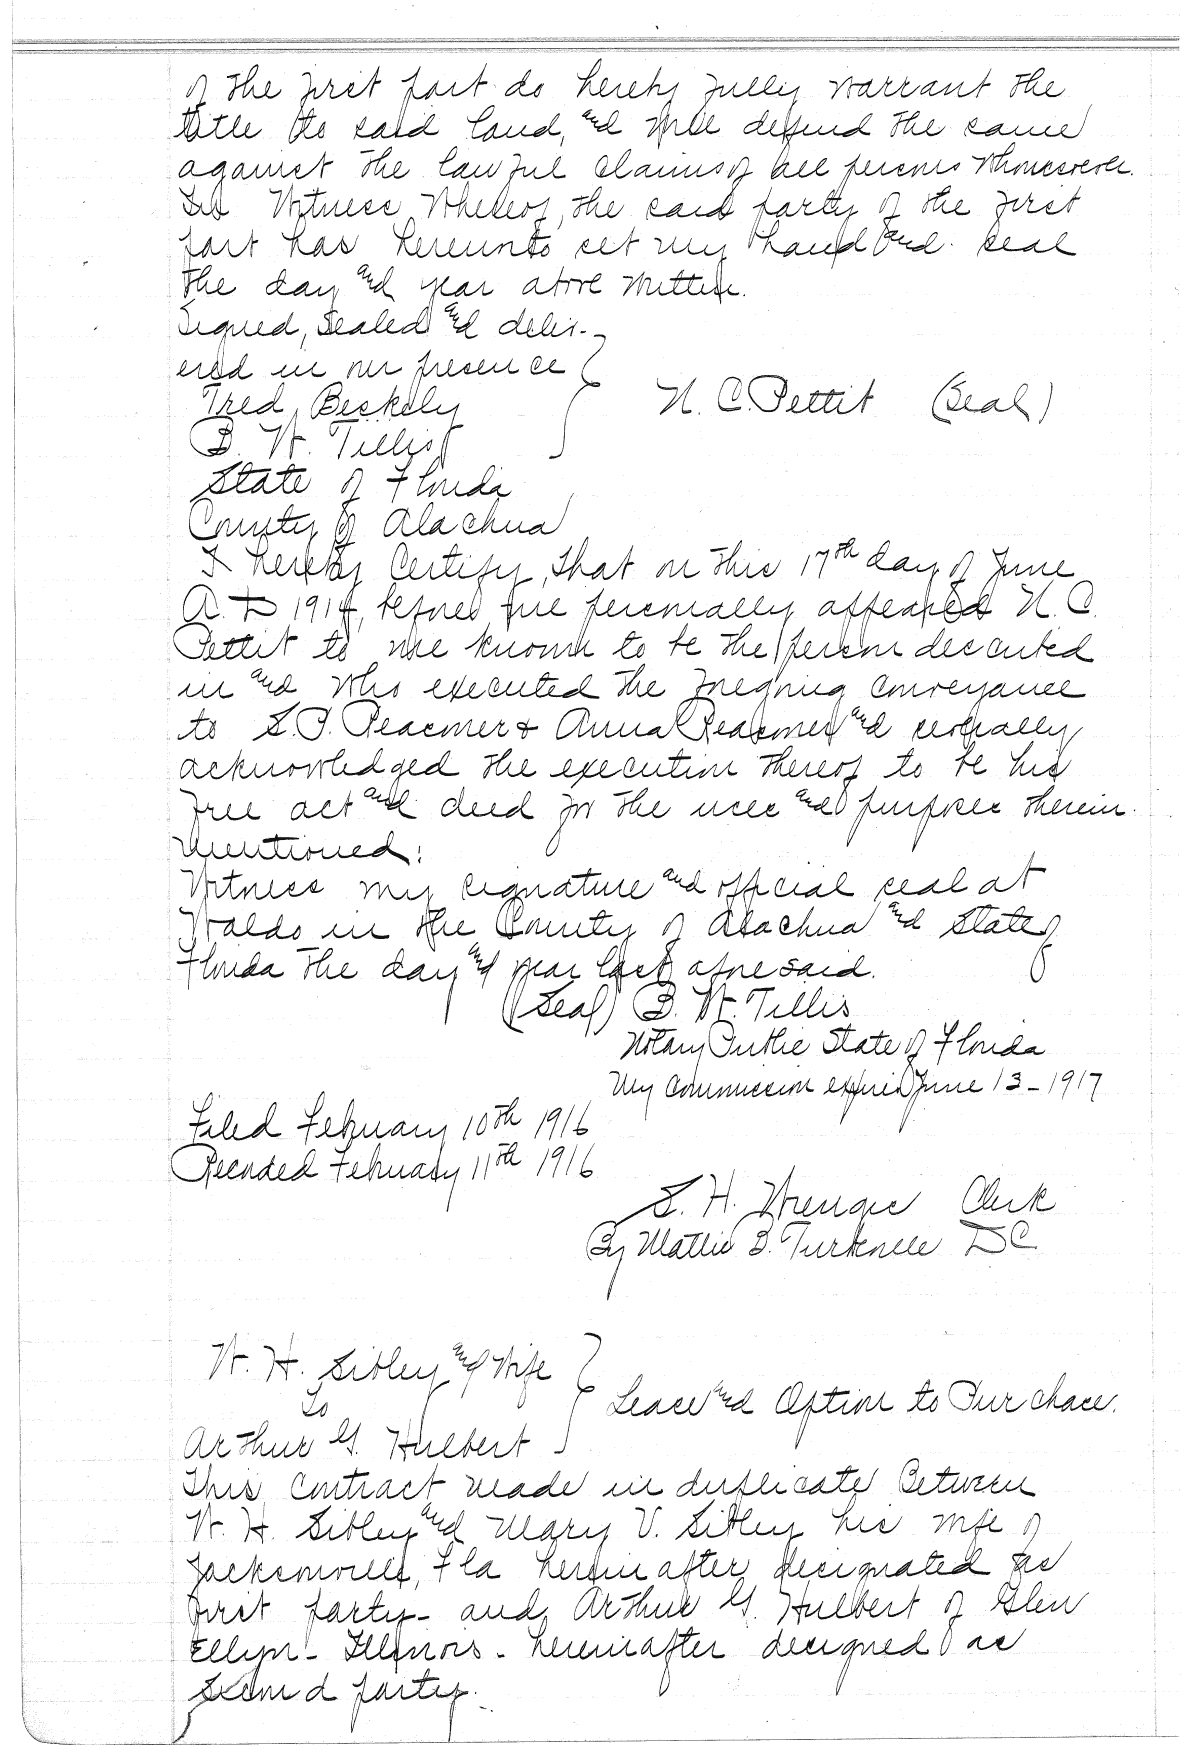 of the first part do hereby fully warrant the
title to said land, and will defend the same
against the lawful claims of all persons whomsoever.
In Witness Whereof, the said party of the first
part has hereunto set my hand and seal
the day and year above written.
Signed, Sealed and deliv-
ered in our presence
Fred Beskely
B. W. Tillis
N. C. Pettit (Seal)
State of Florida
County of Alachua
I hereby Certify, that on this 17th day of June
A.D 1914, before me personally appeared N. C.
Pettit to me known to be the person described
in and who executed the foregoing conveyance
to S. P. Peacmer & Anna Peacmer and severally
acknowledged the execution thereof to be his
free act and deed for the uses and purposes therein
mentioned;
Witness my signature and official seal at
Waldo in the County of Alachua and State of
Florida the day and year last aforesaid.
(Seal) B. W. Tillis
Notary Public State of Florida
My commission expires June 13 - 1917
Filed February 10th 1916
Recorded February 11th 1916
S. H. Wienges Clerk
By Mattie B. Turknell DC
W. H. Sibley and Wife
To
Arthur G. Hulbert
Lease and Option to Purchase.
This Contract made in duplicate Between
W. H. Sibley and Mary V. Sibley his wife of
Jacksonville, Fla hereinafter designated as
first party - and Arthur G. Hulbert of Glen
Ellyn - Illinois - hereinafter designed as
second party.